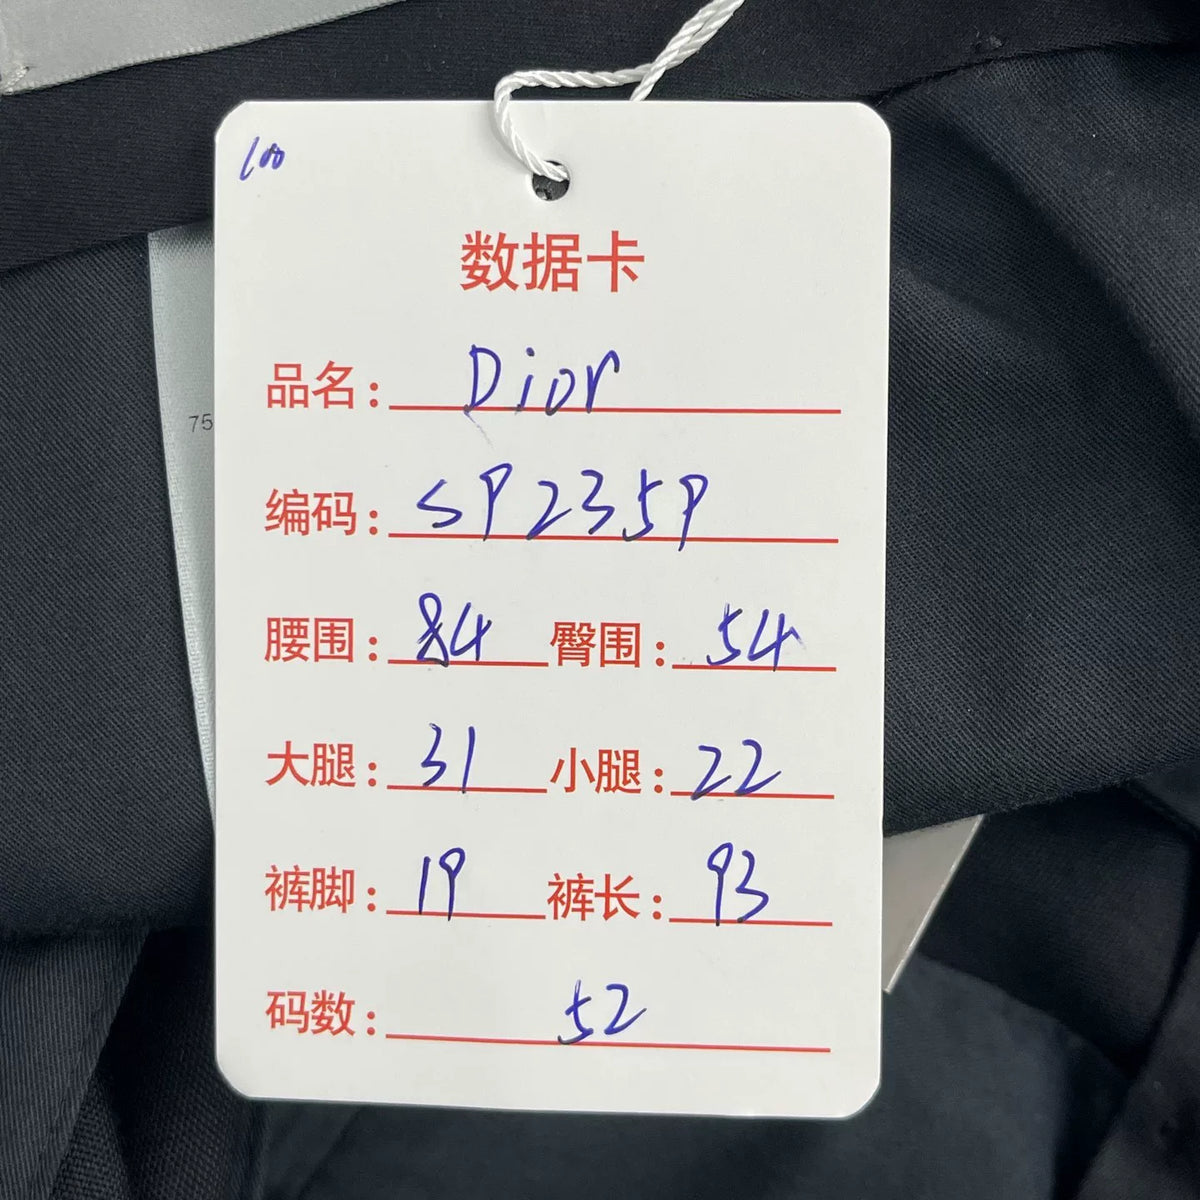 100
数据卡
品名: Dior
编码: SP2359
腰围: 84 臀围: 54
大腿: 31 小腿: 22
裤脚: 19 裤长: 93
码数: 52
75